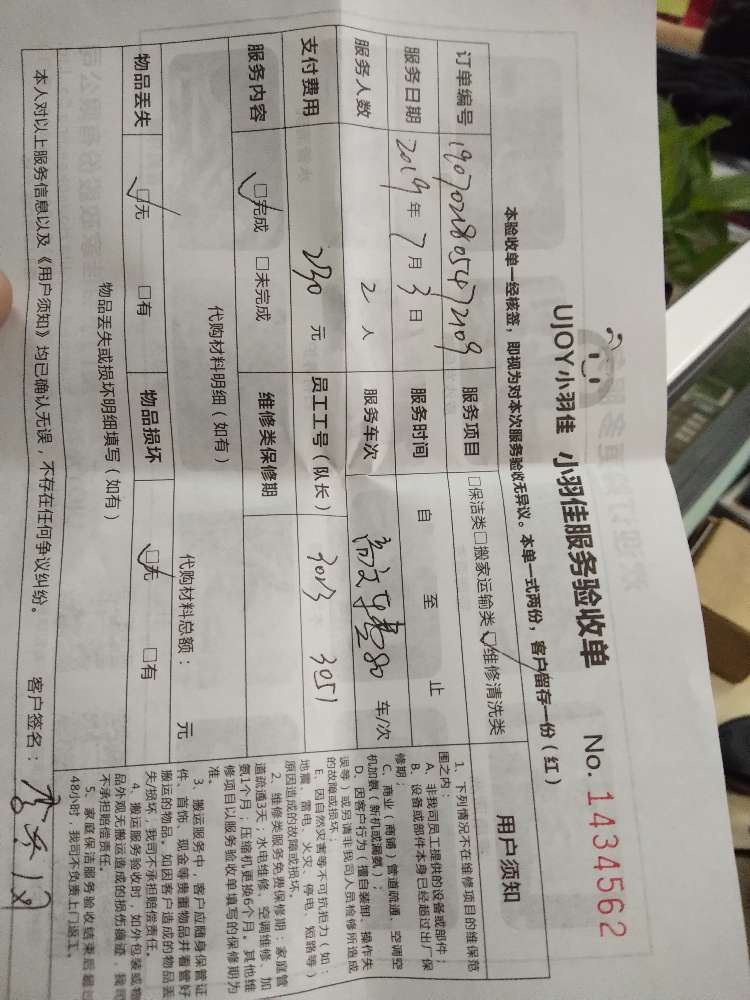 UJOY小羽佳 小羽佳服务验收单 No. 1434562
本验收单一经核签，即视为对本次服务验收无异议。本单一式两份，客户留存一份（红）
订单编号 190702180547209 服务项目 □保洁类□搬家运输类☑维修清洗类
服务日期 2019年7月3日 服务时间 自 至 止
服务人数 2人 服务车次 80 车/次
支付费用 230 元 员工工号（队长） 3023 3051
服务内容 ☑完成 □未完成 维修类保修期
代购材料明细（如有） 代购材料总额： 元
物品丢失 ☑无 □有 物品损坏 ☑无 □有
物品丢失或损坏明细填写（如有）
本人对以上服务信息以及《用户须知》均已确认无误，不存在任何争议纠纷。 客户签名：
用户须知
1、下列情况不在维修项目的维保范
围之内：
A、非我司员工提供的设备或部件；
B、设备或部件本身已经超过出厂保
修期；
C、商业（商铺）管道疏通、空调空
机加氨（新机或漏氨）；
D、因客户行为（擅自装卸、操作失
误等）或另请非我司人员检修所造成
的故障或损坏；
E、因自然灾害等不可抗拒力（如：
地震、雷电、火灾、停电、短路等）
原因造成的故障或损坏。
2、维修类服务免费保修期：家庭管
道疏通3天；水电维修、空调维修、加
氨1个月；压缩机更换6个月。其他维
修项目以服务验收单填写的保修期为
准。
3、搬运服务中，客户应随身保管证
件、首饰、现金等贵重物品并看管好
搬运的物品。如因客户造成的物品丢
失/损坏，我司不承担赔偿责任。
4、搬运服务验收时，如外包装或物
品外观无搬运造成的损伤痕迹，我司
不承担赔偿责任。
5、家庭保洁服务验收结束后超过
48小时，我司不负责上门返工。